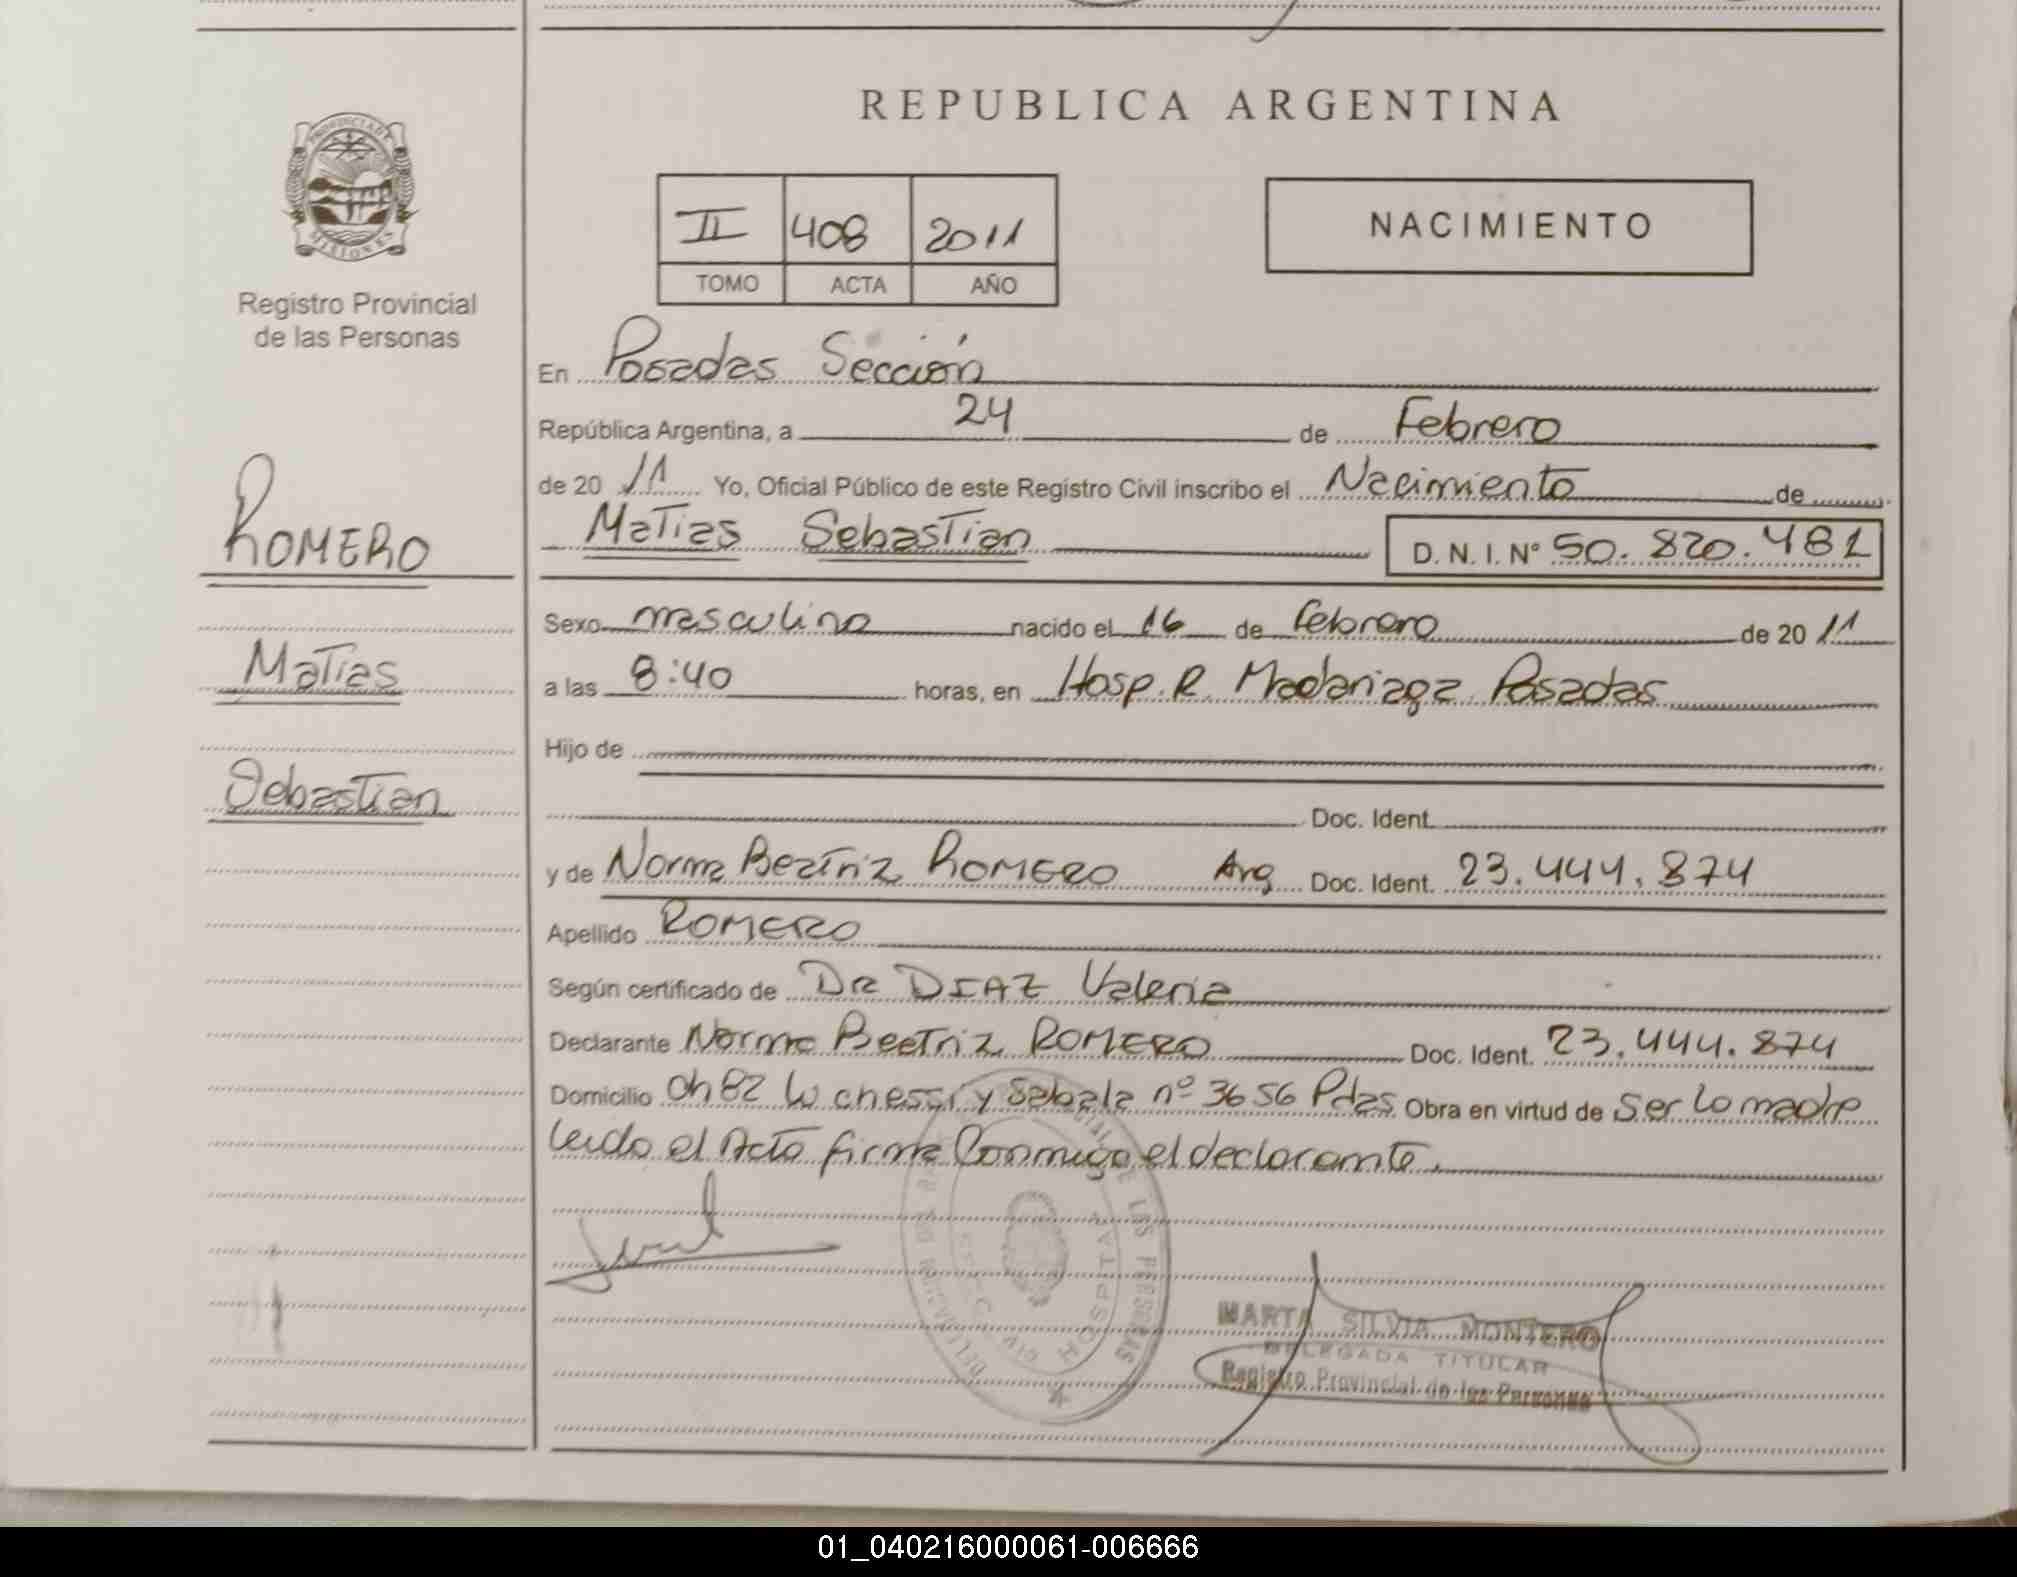 REPUBLICA ARGENTINA
PROVINCIA DE
MISIONES
Registro Provincial
de las Personas
II 408 2011
TOMO ACTA AÑO
NACIMIENTO
En Posadas Sección
República Argentina, a 24 de Febrero
de 20 11 Yo, Oficial Público de este Registro Civil inscribo el Nacimiento de
Matias Sebastian D. N. I. N° 50.820.481
ROMERO
Matias
Sebastian
Sexo masculino nacido el 16 de febrero de 20 11
a las 8:40 horas, en Hosp. R. Madariaga Posadas
Hijo de
Doc. Ident.
y de Norma Beatriz ROMERO Arg Doc. Ident. 23.444.874
Apellido ROMERO
Según certificado de DR DIAZ Valeria
Declarante Norma Beatriz ROMERO Doc. Ident. 23.444.874
Domicilio ch 82 y n° 3656 Pdas Obra en virtud de Ser la madre
leido el Acto firma Conmigo el declarante.
LAS PERSONAS
HOSPITAL
MARTA SILVIA MONTERO
DELEGADA TITULAR
Registro Provincial de las Personas
01_040216000061-006666